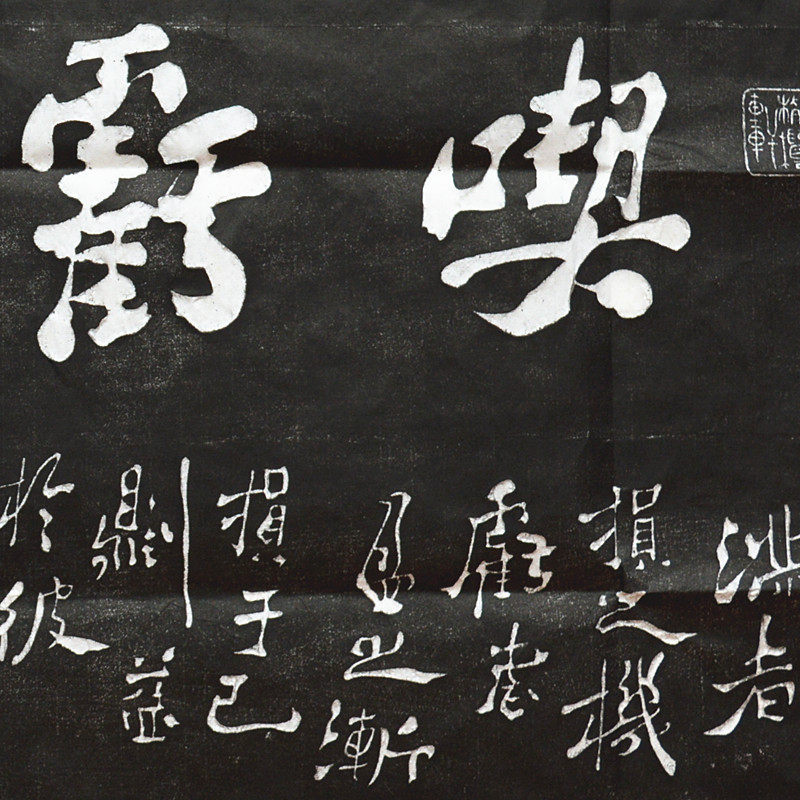 喫虧
滿者
損之機
虧者
盈之漸
損于己
則益
於彼